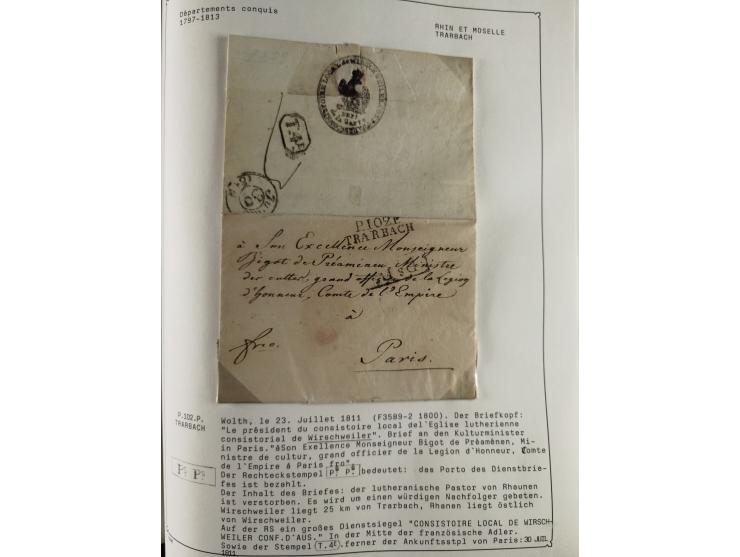 Départements conquis
1797-1813
RHIN ET MOSELLE
TRARBACH
T.4E
P.102.P.
TRARBACH
à Son Excellence Monseigneur
Bigot de Préameneu Ministre
des cultes, grand officier de la Legion
d'honneur, Comte de l'Empire
à
fro.
Paris.
P.102.P.
TRARBACH
Wolth, le 23. Juillet 1811 (F3589-2 1800). Der Briefkopf:
"Le président du consistoire local del'Eglise lutherienne
consistorial de Wirschweiler". Brief an den Kulturminister
in Paris."àSon Exellence Monseigneur Bigot de Prèamènen, Mi-
nistre de cultur, grand officier de la Legion d'Honneur, Comte
de l'Empire á Paris fro"
Der Rechteckstempel P.P. bedeutet: das Porto des Dienstbrie-
fes ist bezahlt.
P.P.
Der Inhalt des Briefes: der lutheranische Pastor von Rhaunen
ist verstorben. Es wird um einen würdigen Nachfolger gebeten.
Wirschweiler liegt 25 km von Trarbach, Rhanen liegt östlich
von Wirschweiler.
Auf der RS ein großes Dienstsiegel "CONSISTOIRE LOCAL DE WIRSCH-
WEILER CONF.D'AUS." In der Mitte der französische Adler.
Sowie der Stempel T.4E.ferner der Ankunftsstpl von Paris:30 JUIL
1811